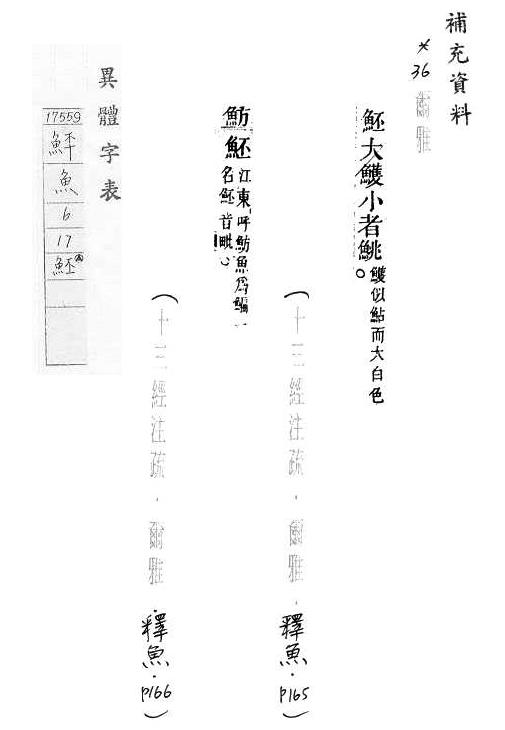 補充資料
*36 爾雅
魾大鱯小者鮡。鱯似鮎而大白色
(十三經注疏.爾雅.釋魚.P165)
魴魾江東呼魴魚爲鯿一
名魾音毗。
(十三經注疏.爾雅.釋魚.P166)
異體字表
17559
魚
6
17
魾